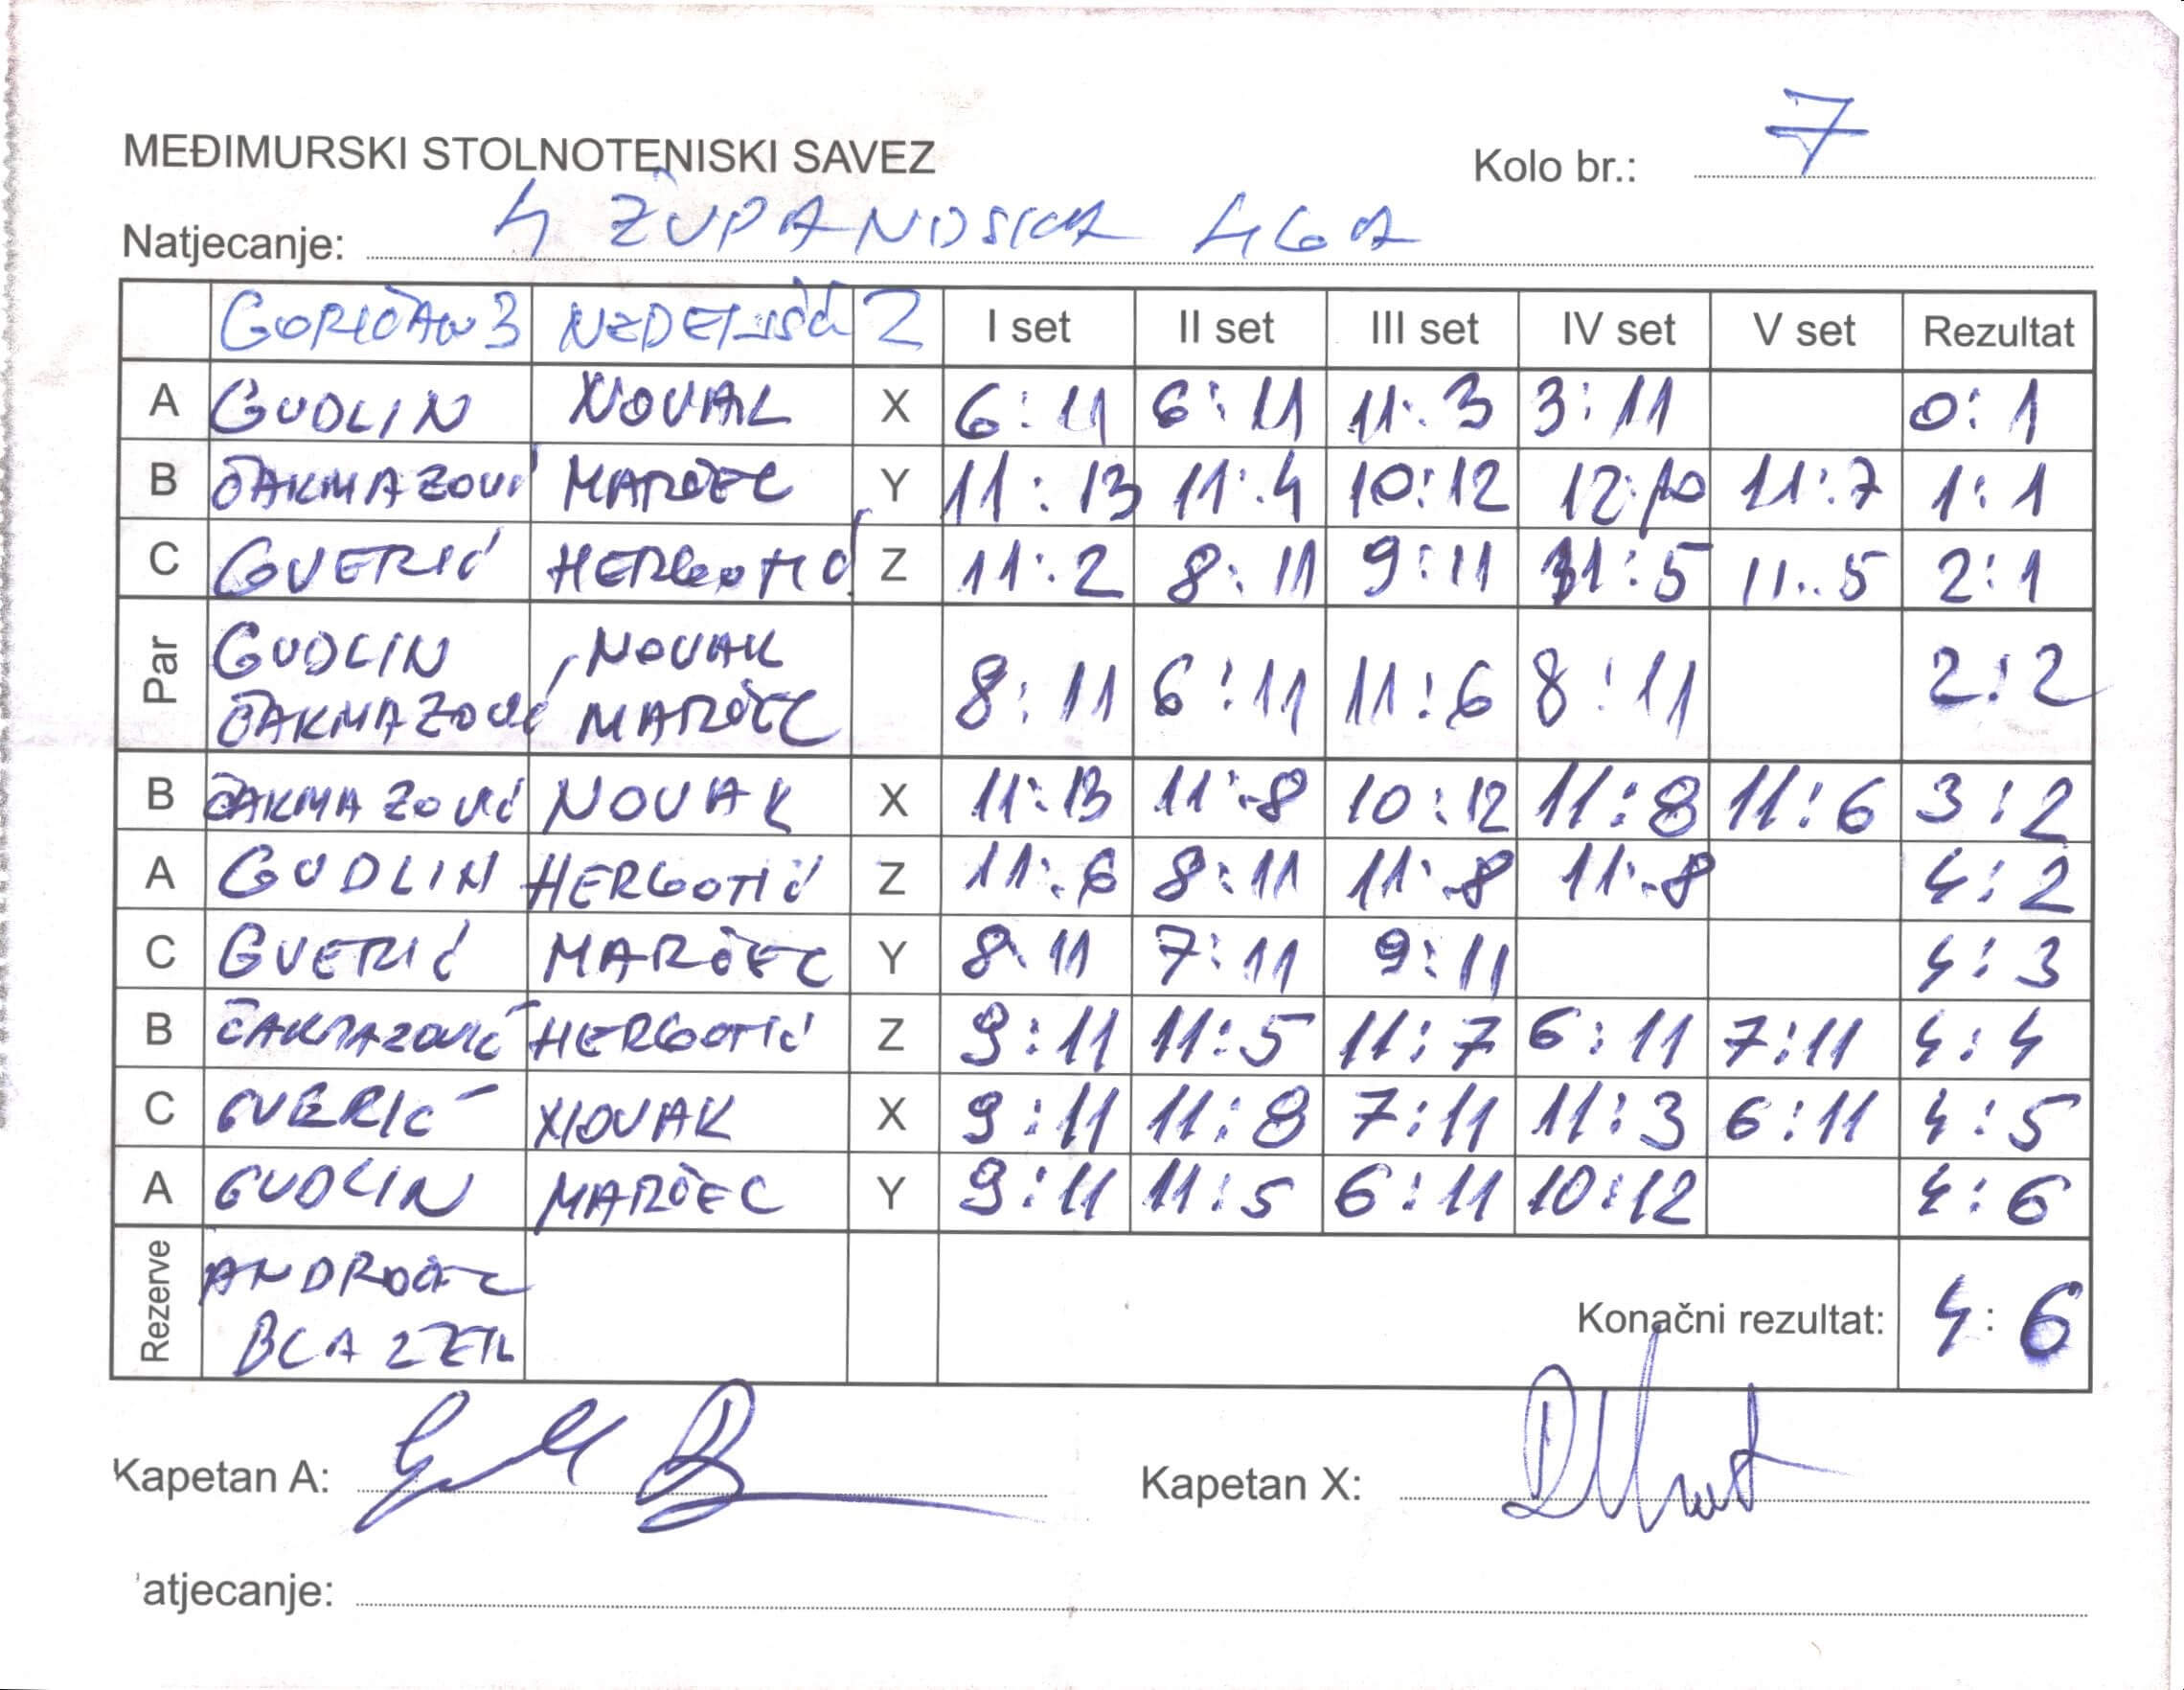 MEĐIMURSKI STOLNOTENISKI SAVEZ Kolo br.: 7
Natjecanje: 4 ŽUPANIJSKA LIGA
GORIČAN 3 NEDELIŠĆE 2 I set II set III set IV set V set Rezultat
A GUDLIN NOVAK X 6:11 6:11 11:3 3:11 0:1
B ČAKMAZOVIĆ MARČEC Y 11:13 11:4 10:12 12:10 11:7 1:1
C GVERIĆ HERGOTIĆ Z 11:2 8:11 9:11 11:5 11:5 2:1
Par GUDLIN NOVAK
ČAKMAZOVIĆ MARČEC 8:11 6:11 11:6 8:11 2:2
B ČAKMAZOVIĆ NOVAK X 11:13 11:8 10:12 11:8 11:6 3:2
A GUDLIN HERGOTIĆ Z 11:6 8:11 11:8 11:8 4:2
C GVERIĆ MARČEC Y 8:11 7:11 9:11 4:3
B ČAKMAZOVIĆ HERGOTIĆ Z 9:11 11:5 11:7 6:11 7:11 4:4
C GVERIĆ NOVAK X 9:11 11:8 7:11 11:3 6:11 4:5
A GUDLIN MARČEC Y 9:11 11:5 6:11 10:12 4:6
Rezerve ANDROČEC
Konačni rezultat: 4:6
Kapetan A: Kapetan X:
atjecanje: